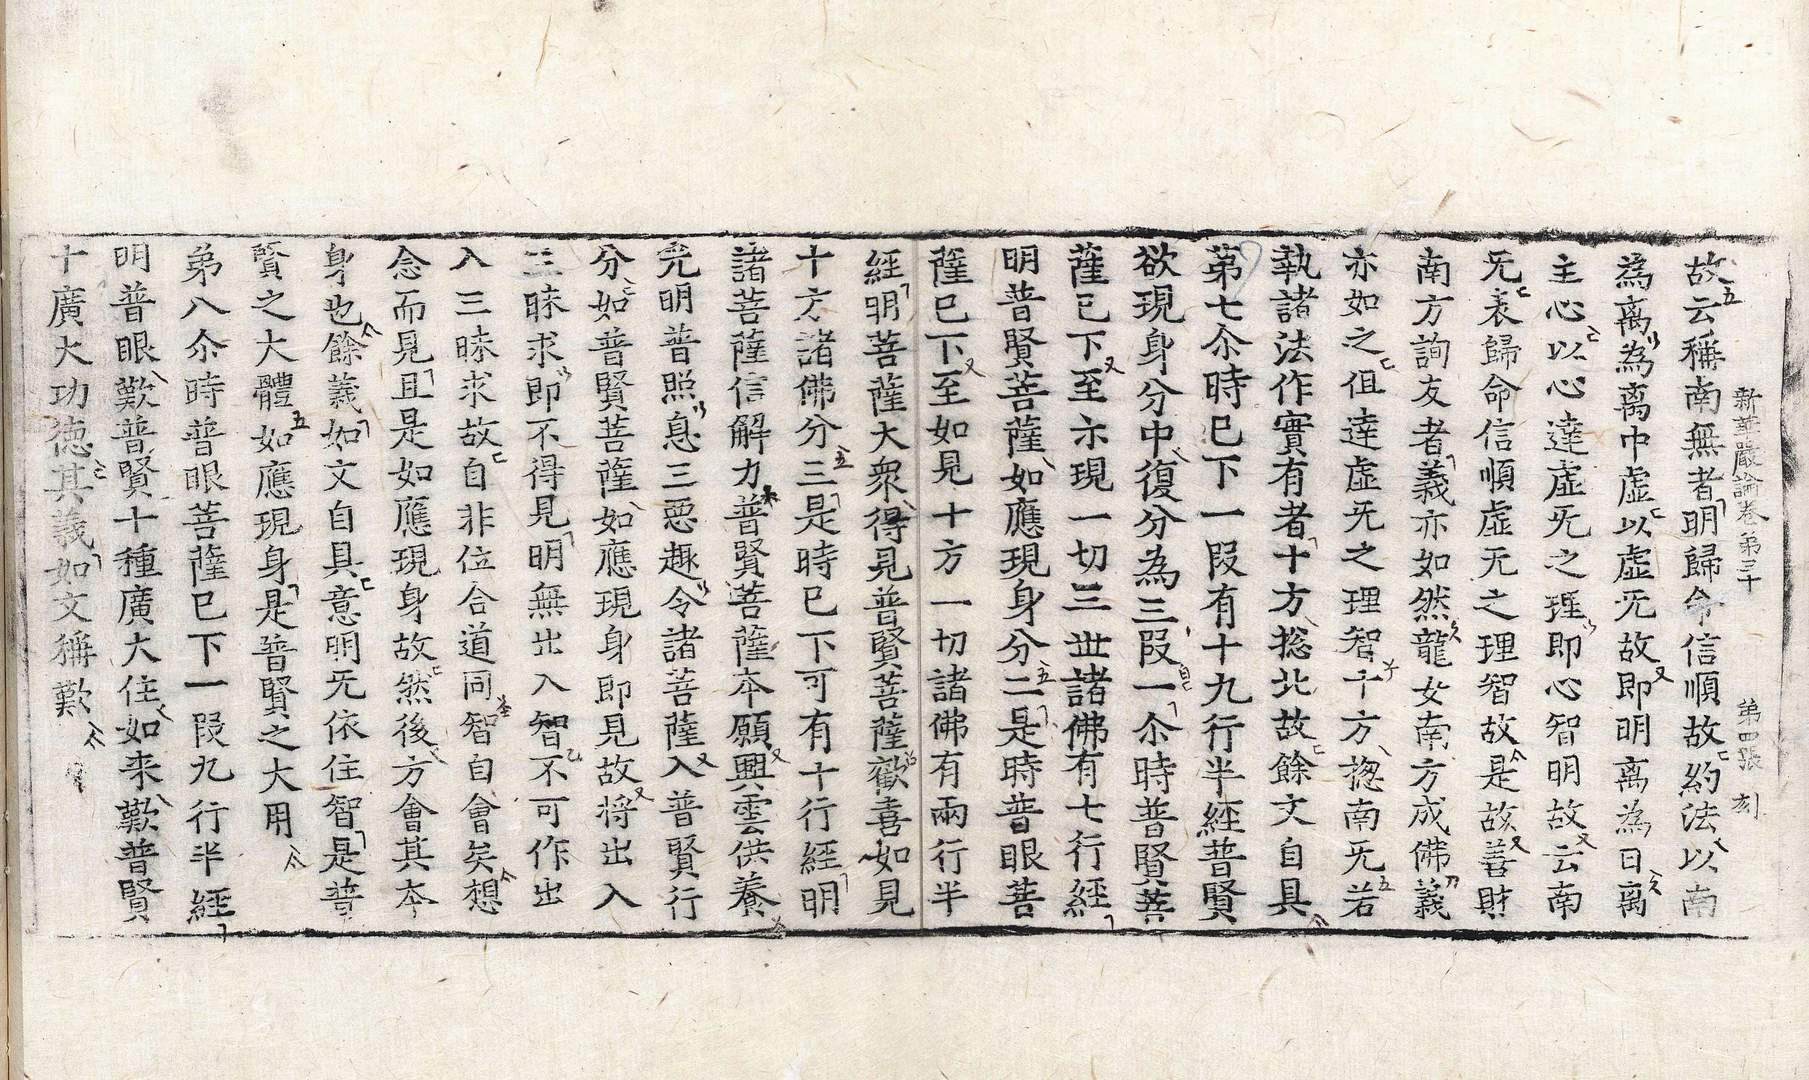 新華嚴論卷第三十 第四張 刻
故云稱南無者明歸命信順故約法以南
為离為离中虛以虛旡故即明离為日离
主心以心達虛旡之理即心智明故云南
旡表歸命信順虛旡之理智故是故善財
南方詢友者義亦如然龍女南方成佛義
亦如之但達虛旡之理智十方揔南旡若
執諸法作實有者十方揔北故餘文自具
第七尒時已下一段有十九行半經普賢
欲現身分中復分為三段一尒時普賢菩
薩已下至示現一切三世諸佛有七行經
明普賢菩薩如應現身分二是時普眼菩
薩已下至如見十方一切諸佛有兩行半
經明菩薩大衆得見普賢菩薩歡喜如見
十方諸佛分三是時已下可有十行經明
諸菩薩信解力普賢菩薩本願興雲供養
光明普照息三惡趣令諸菩薩入普賢行
分如普賢菩薩如應現身即見故将出入
三昧求即不得見明無出入智不可作出
入三昧求故自非位合道同智自會矣想
念而見且是如應現身故然後方會其本
身也餘義如文自具意明旡依住智是普
賢之大體如應現身是普賢之大用
第八尒時普眼菩薩已下一段九行半經
明普眼歎普賢十種廣大住如来歎普賢
十廣大功徳其義如文稱歎